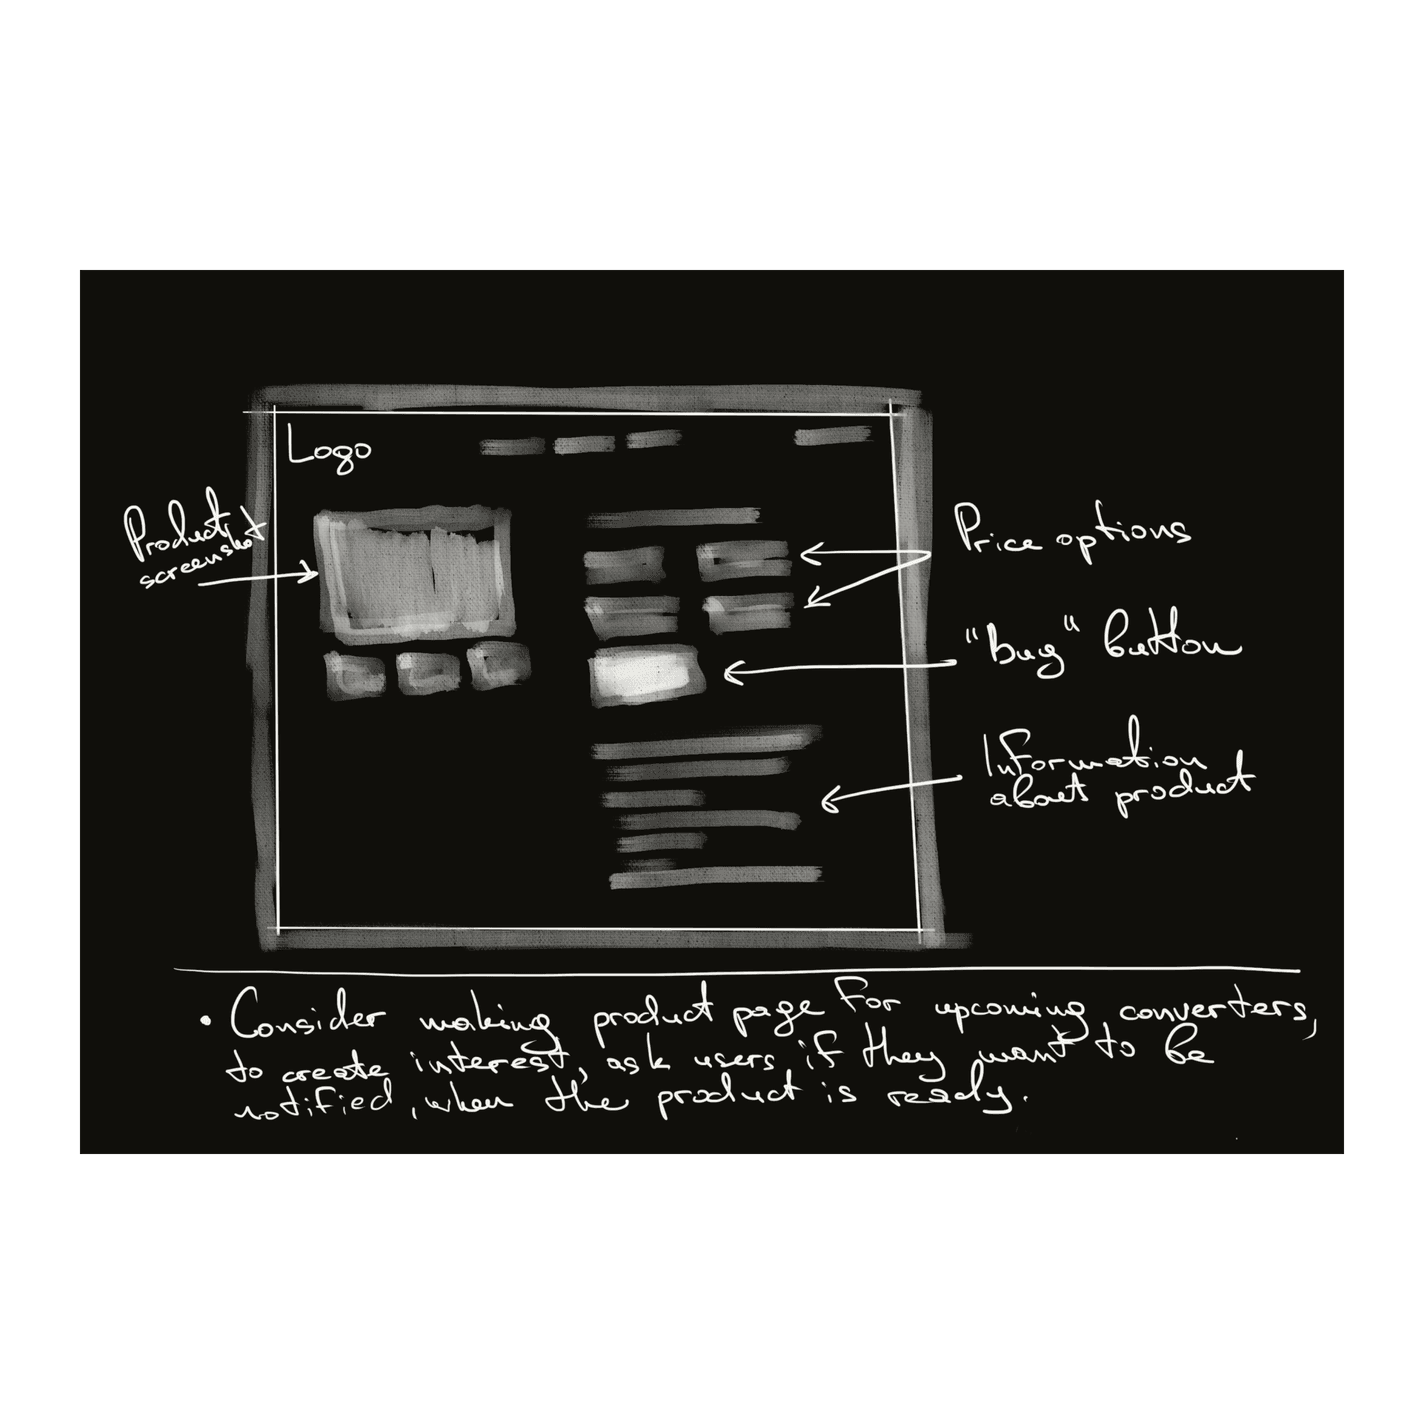 Logo
Product
screenshot
Price options
"buy" button
Information
about product
• Consider making product page for upcoming converters,
to create interest, ask users, if they want to be
notified, when the product is ready.